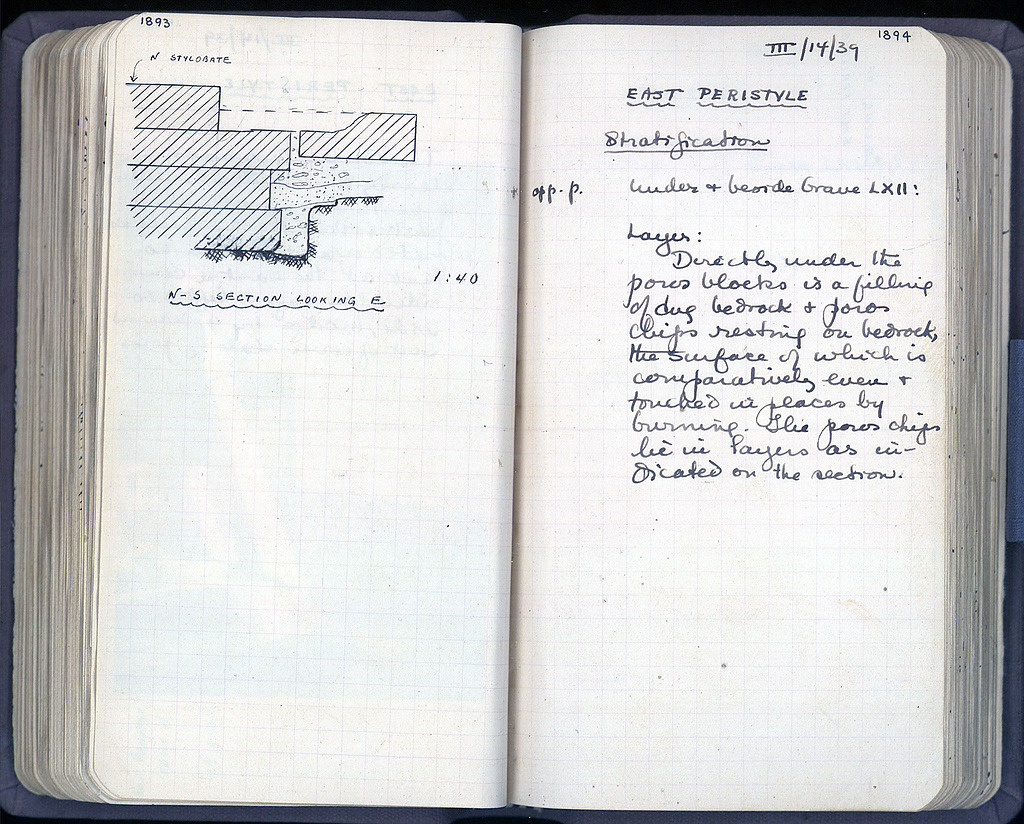 1893
N STYLOBATE
1:40
N-S SECTION LOOKING E
1894
III/14/39
EAST PERISTYLE
Stratification
opp. p.
under + beside Grave LXII:
Layer:
Directly under the
poros blocks is a filling
of dug bedrock + poros
chips resting on bedrock,
the surface of which is
comparatively even +
touched in places by
burning. The poros chips
lie in layers as in-
dicated on the section.